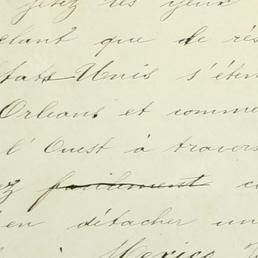 jetez les yeux
élant que de rés
États Unis s'éten
Orléans et comme
l'Ouest à travers
ez facilement c
'en détacher un
Mexico